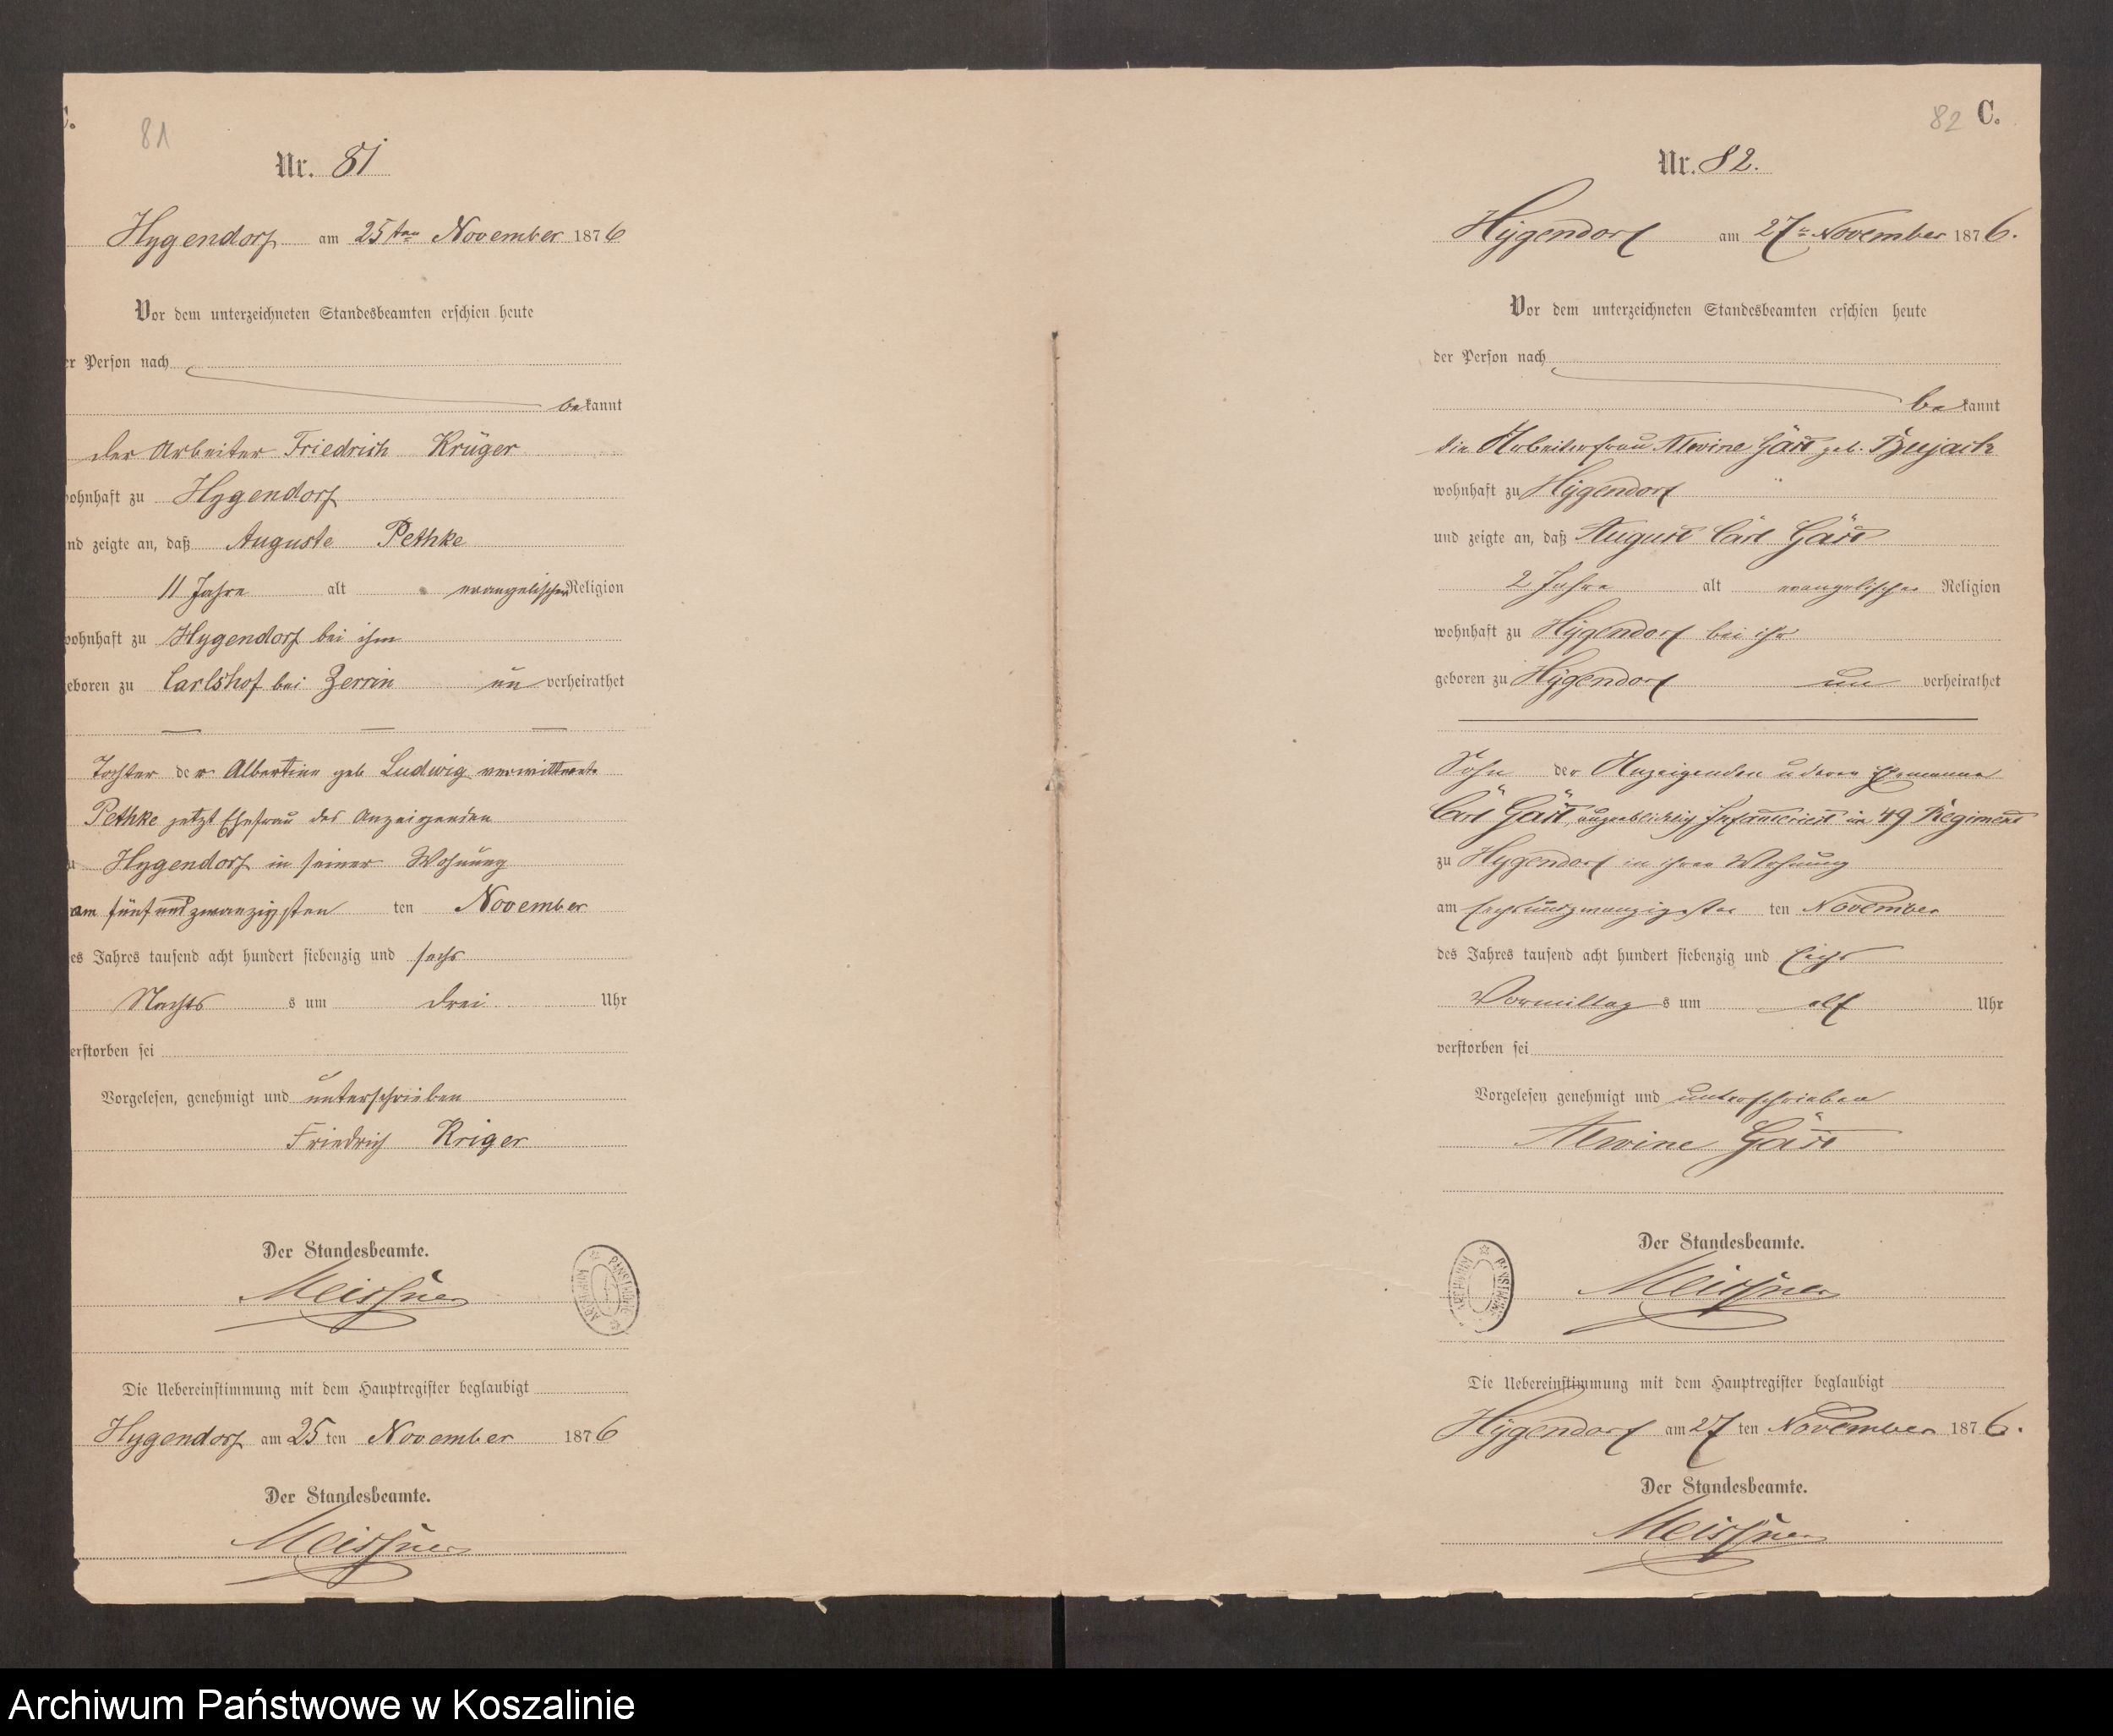 C.
81
Nr. 81
Hygendorf am 25ten November 1876
Vor dem unterzeichneten Standesbeamten erschien heute
er Person nach
bekannt
der Arbeiter Friedrich Krüger
wohnhaft zu Hygendorf
und zeigte an, daß Auguste Pethke
11 Jahre alt evangelischer Religion
wohnhaft zu Hygendorf bei ihm
geboren zu Carlshof bei Zerrin un verheirathet
Tochter der Albertine geb Ludwig verwittwete
Pethke jetzt Ehefrau des Anzeigenden
zu Hygendorf in seiner Wohnung
am fünfundzwanzigsten ten November
des Jahres tausend acht hundert siebenzig und sechs
Nachts s um drei Uhr
verstorben sei
Vorgelesen, genehmigt und unterschrieben
Friedrich Kriger
Der Standesbeamte.
Meissner
ARCHIWUM PAŃSTWOWE
Die Uebereinstimmung mit dem Hauptregister beglaubigt
Hygendorf am 25 ten November 1876
Der Standesbeamte.
Meissner
82 C.
Nr. 82.
Hÿgendorf am 27 November 1876.
Vor dem unterzeichneten Standesbeamten erschien heute
der Person nach
bekannt
die Arbeiterfrau Alwine geb.
wohnhaft zu Hÿgendorf
und zeigte an, daß August Carl
2 Jahre alt evangelischer Religion
wohnhaft zu Hÿgendorf bei ihr
geboren zu Hÿgendorf un verheirathet
Sohn der Anzeigenden u deren Ehemann
Carl augenblicklich Infanterist im 49 Regiment
zu Hygendorf in ihrer Wohnung
am sechsundzwanzigsten ten November
des Jahres tausend acht hundert siebenzig und sechs
Vormittag s um elf Uhr
verstorben sei
Vorgelesen genehmigt und unterschrieben
Alwine
Der Standesbeamte.
Meissner
ARCHIWUM PAŃSTWOWE
Die Uebereinstimmung mit dem Hauptregister beglaubigt
Hÿgendorf am 27 ten November 1876.
Der Standesbeamte.
Meissner
Archiwum Państwowe w Koszalinie